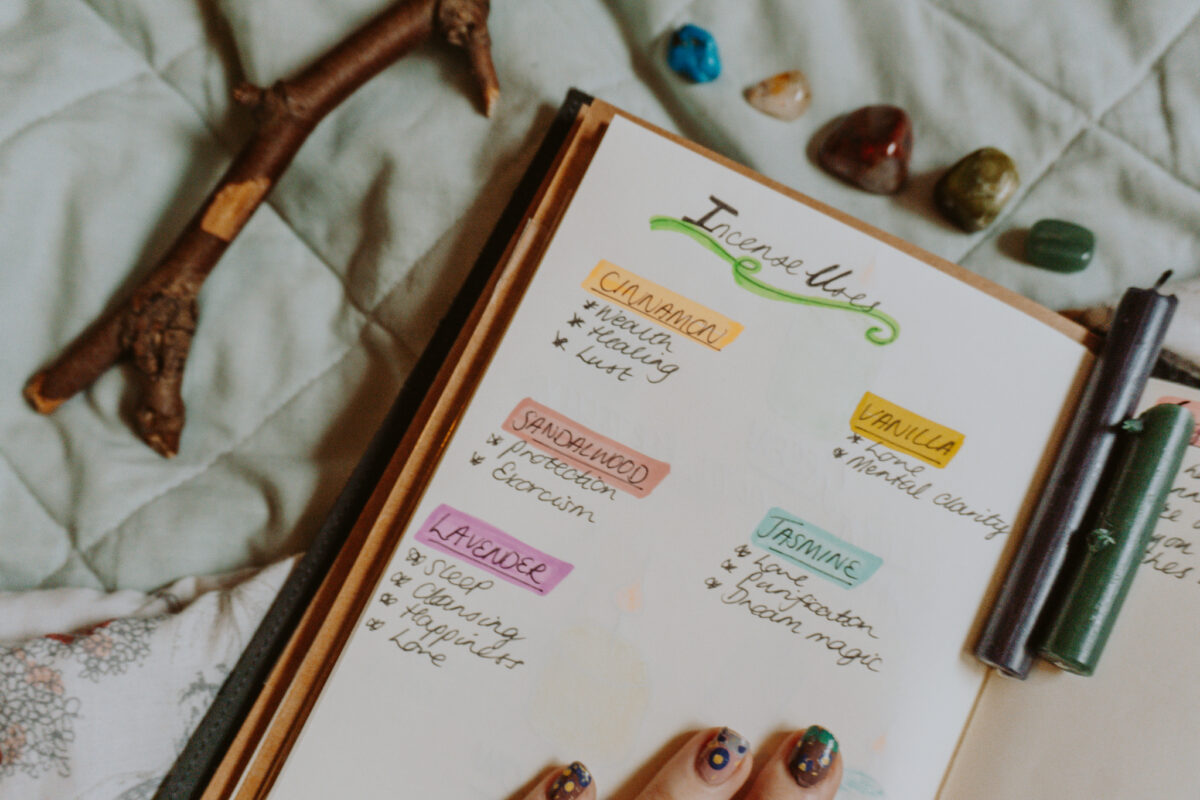 Incense Uses
CINNAMON
* Wealth
* Healing
* Lust
SANDALWOOD
* Protection
* Exorcism
LAVENDER
* Sleep
* Cleansing
* Happiness
* Love
VANILLA
* Love
* Mental clarity
JASMINE
* Love
* Purification
* Dream magic